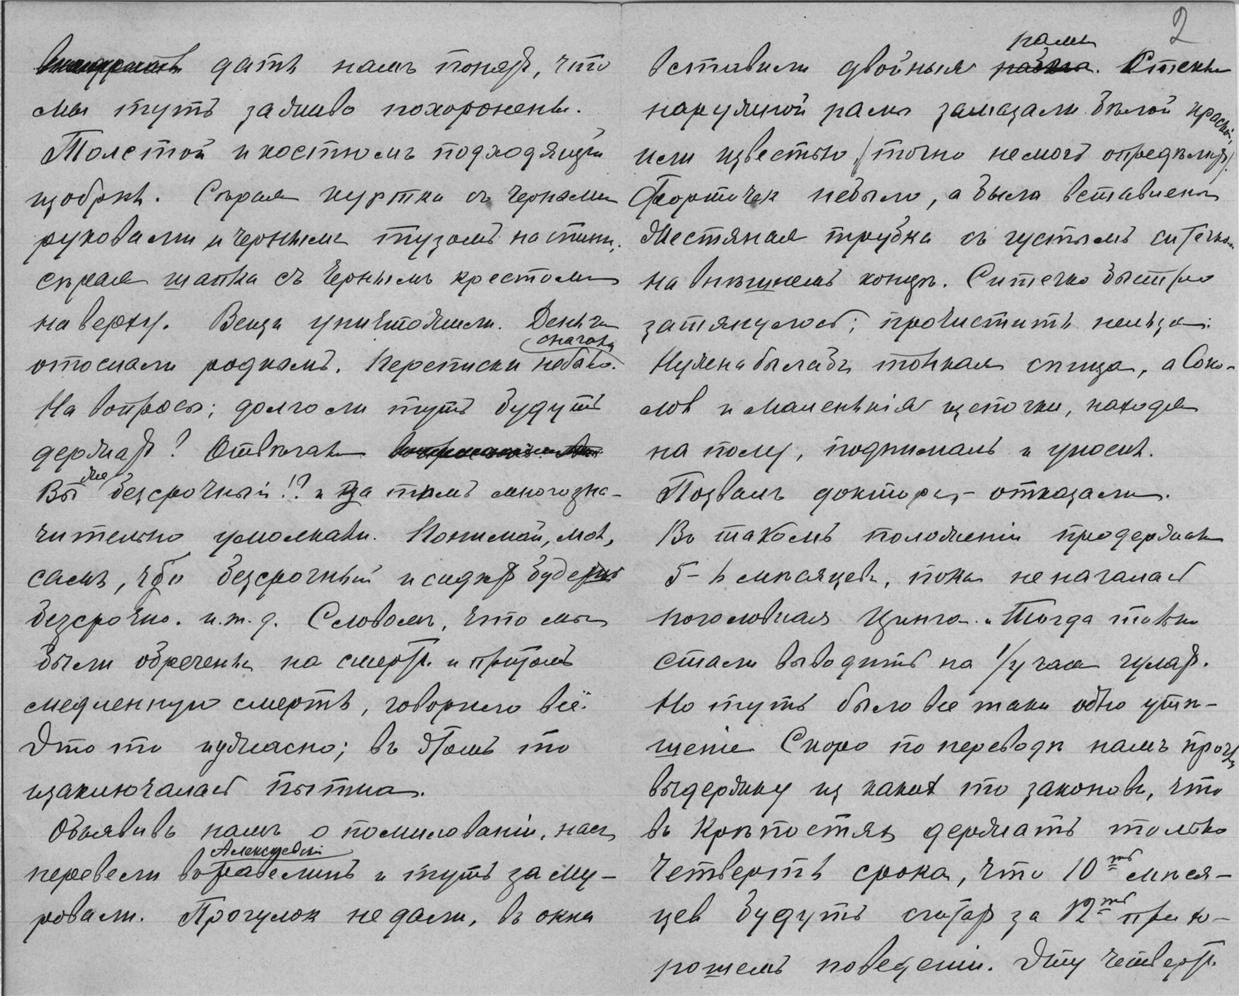 дать намъ понять, что
мы тутъ заживо похоронены.
Толстой и костюмъ подходящій
изобрѣлъ. Сѣрая куртка съ черными
рукавами и чернымъ тузомъ на спинѣ,
сѣрая шапка съ чернымъ крестомъ
наверху. Вещи уничтожили. Деньги
отослали роднымъ. Переписки сначала небыло.
На вопросы; долго ли тутъ будутъ
держать? Отвѣчали
Вы же безсрочный!? и за тѣмъ многозна-
чительно умолкали. Понимай, мол,
самъ, что безсрочный и сидѣть будешь
безсрочно. и.т.д. Словомъ, что мы
были обречены на смерть и притомъ
медленную смерть, говорило всё.
Это то и ужасно; въ этомъ то
и заключалась пытка.
Объявивъ намъ о помилованіи, насъ
перевели въ Алексѣевскій равелинъ и тутъ заму-
ровали. Прогулок не дали, въ окна
2
вставили двойныя рамы. Стекла
наружной рамы замазали бѣлой краской,
или известью, (точно не могъ опредѣлить).
Форточек небыло, а была вставлена
жестяная трубка съ густымъ ситечком
на внѣшнемъ концѣ. Ситечко быстро
затянулось; прочистить нельзя:
Нужна была бъ тонкая спица, а Соко-
лов и маленькія щепочки, находя
на полу, поднималъ и уносилъ.
Позвать доктора, - отказали.
Въ такомъ положеніи продержали
5-ь мѣсяцевъ, пока не началась
поголовная цынга. Тогда только
стали выводить на 1/4 часа гулять.
Но тутъ было все таки одно утѣ-
шеніе Скоро по переводѣ намъ прочли
выдержку из каких то законовъ, что
въ крѣпостях держать только
четверть срока, что 10ть мѣся-
цев будутъ считать за 12ть при хо-
рошемъ поведеніи. Эту четверть